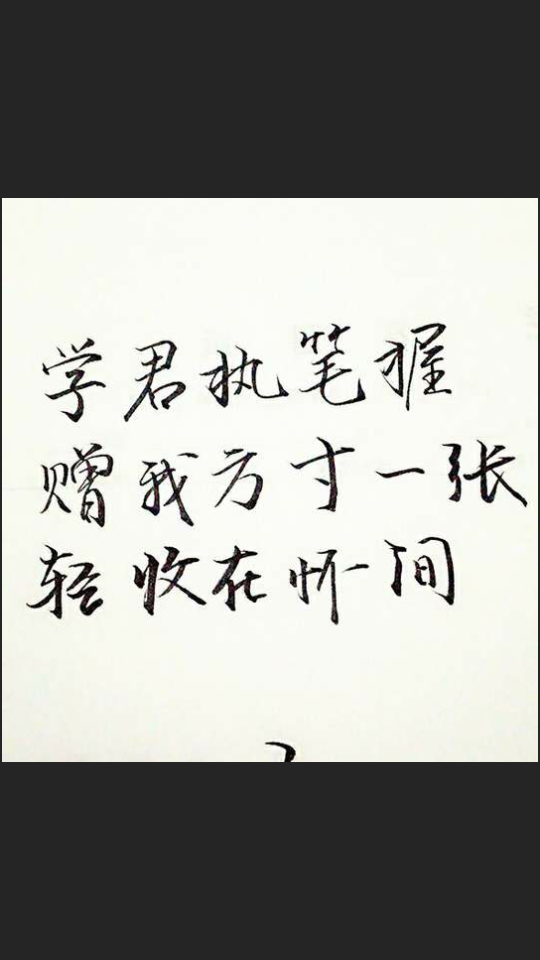 学君执笔握
赠我方寸一张
轻收在怀间